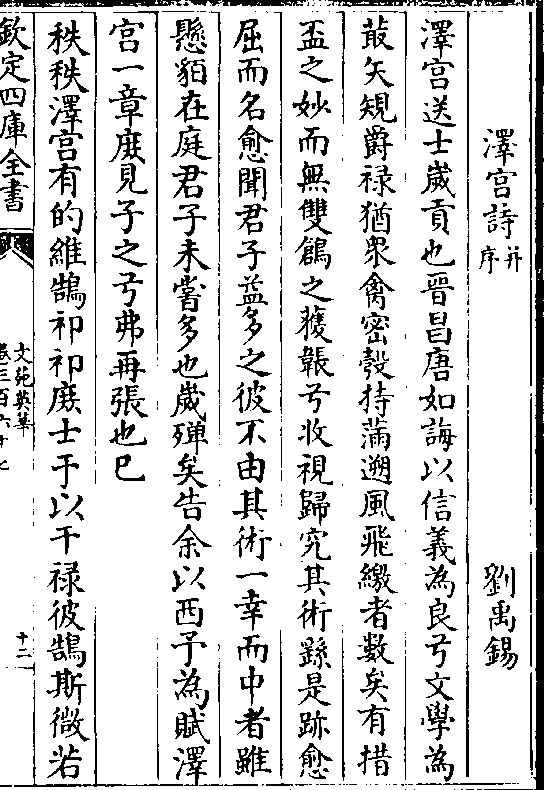 澤宫詩并序 劉禹錫
澤宫送士歲貢也晉昌唐如誨以信義為良弓文學為
菆矢䂓爵禄猶衆禽密彀持滿遡風飛繳者數矣有措
盃之妙而無雙鶬之獲韔弓收視歸究其術繇是跡愈
屈而名愈聞君子益多之彼不由其術一幸而中者雖
懸貆在庭君子未嘗多也歲殫矣告余以西予為賦澤
宫一章庻見子之弓弗再張也已
秩秩澤宫有的維鵠祁祁庻士于以干禄彼鵠斯微若
欽定四庫全書
文苑英華
卷三百六十七
十二